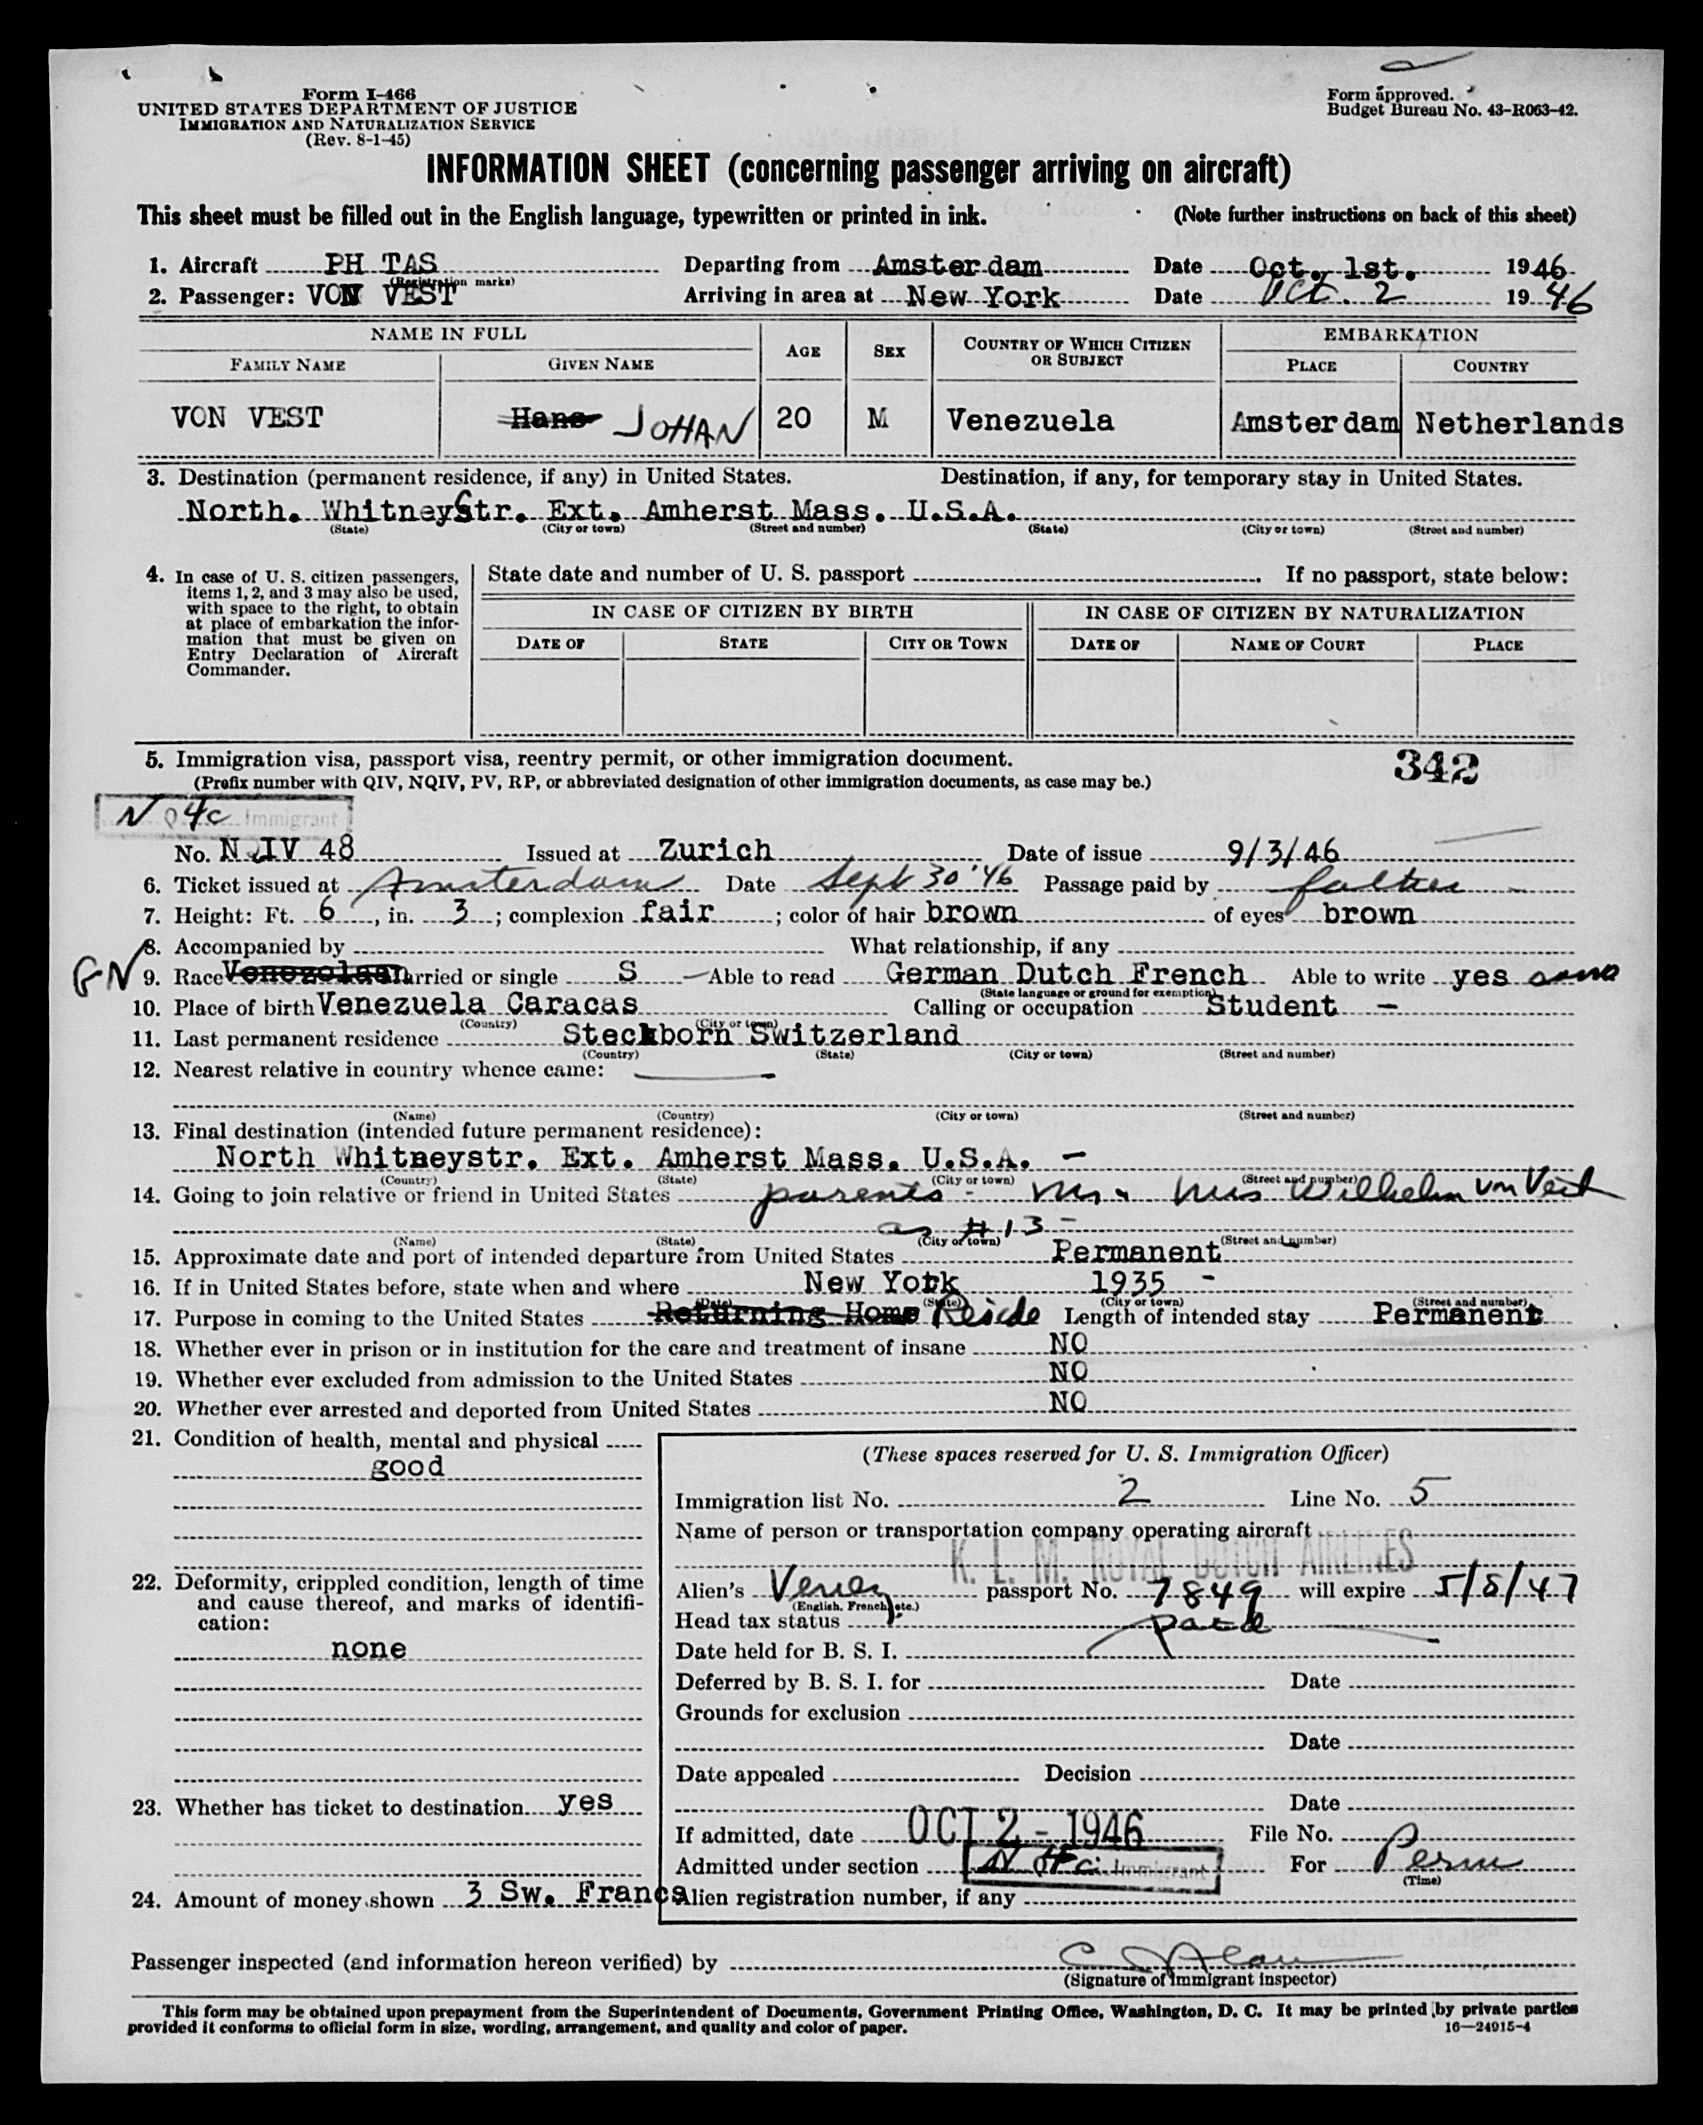 Form I-466
UNITED STATES DEPARTMENT OF JUSTICE
IMMIGRATION AND NATURALIZATION SERVICE
(Rev. 8-1-45)
Form approved.
Budget Bureau No. 43-R063-42.
INFORMATION SHEET (concerning passenger arriving on aircraft)
This sheet must be filled out in the English language, typewritten or printed in ink. (Note further instructions on back of this sheet)
1. Aircraft PH TAS Departing from Amsterdam Date Oct. 1st. 1946
(Registration marks)
2. Passenger: VON VEST Arriving in area at New York Date Oct. 2 1946
NAME IN FULL AGE SEX COUNTRY OF WHICH CITIZEN OR SUBJECT EMBARKATION
FAMILY NAME GIVEN NAME PLACE COUNTRY
VON VEST Hans JOHAN 20 M Venezuela Amsterdam Netherlands
3. Destination (permanent residence, if any) in United States. Destination, if any, for temporary stay in United States.
North. Whitney Str. Ext. Amherst Mass. U.S.A.
(State) (City or town) (Street and number) (State) (City or town) (Street and number)
4. In case of U. S. citizen passengers, items 1, 2, and 3 may also be used, with space to the right, to obtain at place of embarkation the information that must be given on Entry Declaration of Aircraft Commander.
State date and number of U. S. passport If no passport, state below:
IN CASE OF CITIZEN BY BIRTH IN CASE OF CITIZEN BY NATURALIZATION
DATE OF STATE CITY OR TOWN DATE OF NAME OF COURT PLACE
5. Immigration visa, passport visa, reentry permit, or other immigration document. 342
(Prefix number with QIV, NQIV, PV, RP, or abbreviated designation of other immigration documents, as case may be.)
N Q 4c Immigrant
No. NQIV 48 Issued at Zurich Date of issue 9/3/46
6. Ticket issued at Amsterdam Date Sept 30 '46 Passage paid by father
7. Height: Ft. 6, in. 3; complexion fair; color of hair brown of eyes brown
8. Accompanied by What relationship, if any
GN 9. Race Venezolaan Married or single S Able to read German Dutch French Able to write yes same
(State language or ground for exemption)
10. Place of birth Venezuela Caracas Calling or occupation Student -
(Country) (City or town)
11. Last permanent residence Steckborn Switzerland
(Country) (State) (City or town) (Street and number)
12. Nearest relative in country whence came:
(Name) (Country) (City or town) (Street and number)
13. Final destination (intended future permanent residence):
North Whitneystr. Ext. Amherst Mass. U.S.A. -
(Country) (State) (City or town) (Street and number)
14. Going to join relative or friend in United States parents - Mr. & Mrs Wilhelm von Vest
as # 13 -
(Name) (State) (City or town) (Street and number)
15. Approximate date and port of intended departure from United States Permanent
16. If in United States before, state when and where New York 1935 -
(Date) (State) (City or town) (Street and number)
17. Purpose in coming to the United States Returning Home Reside Length of intended stay Permanent
18. Whether ever in prison or in institution for the care and treatment of insane NO
19. Whether ever excluded from admission to the United States NO
20. Whether ever arrested and deported from United States NO
21. Condition of health, mental and physical
good
22. Deformity, crippled condition, length of time and cause thereof, and marks of identification:
none
23. Whether has ticket to destination yes
24. Amount of money shown 3 Sw. Francs
(These spaces reserved for U. S. Immigration Officer)
Immigration list No. 2 Line No. 5
Name of person or transportation company operating aircraft
K. L. M. ROYAL DUTCH AIRLINES
Alien's Venez passport No. 7849 will expire 5/8/47
(English, French, etc.)
Head tax status paid
Date held for B. S. I.
Deferred by B. S. I. for Date
Grounds for exclusion
Date
Date appealed Decision
Date
If admitted, date OCT 2 - 1946 File No.
Admitted under section N Q 4c Immigrant For Perm
(Time)
Alien registration number, if any
Passenger inspected (and information hereon verified) by
(Signature of Immigrant Inspector)
This form may be obtained upon prepayment from the Superintendent of Documents, Government Printing Office, Washington, D. C. It may be printed by private parties
provided it conforms to official form in size, wording, arrangement, and quality and color of paper. 16—24915-4